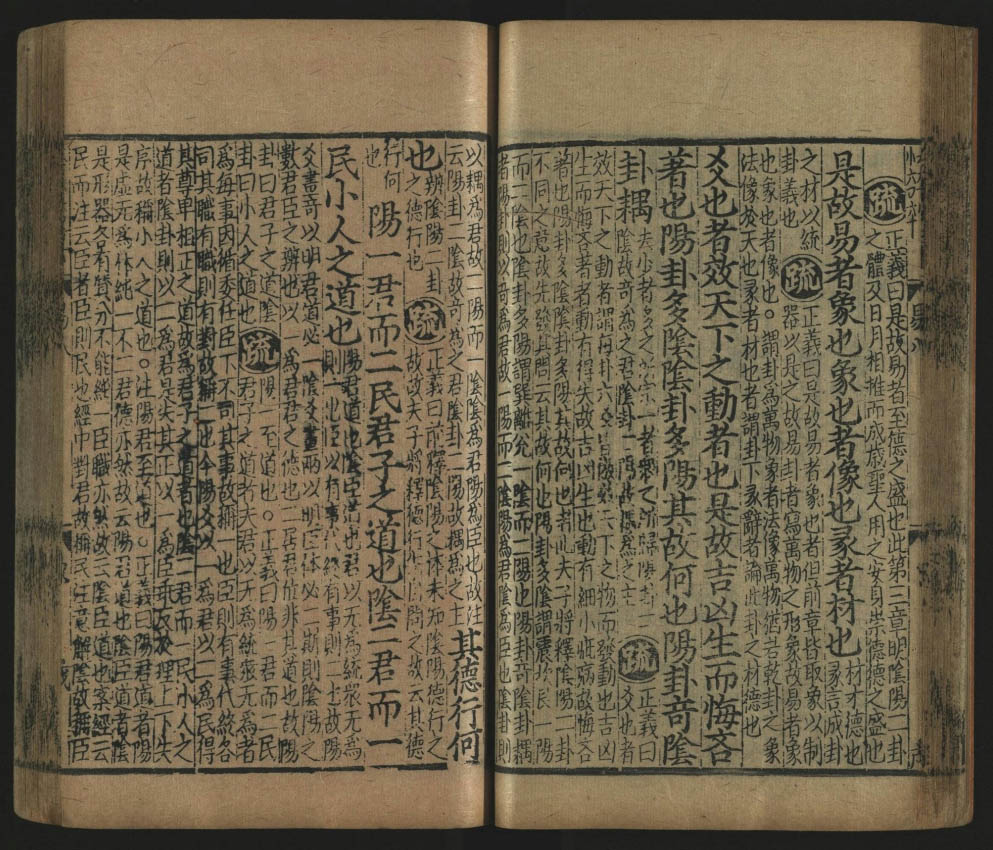 疏正義曰是故易者至德之盛也此第三章明陰陽二卦
之體及日月相推而成歲聖人用之安身崇德德之盛也
是故易者象也象也者像也彖者材也
材才德也
彖言成卦
之材以統
卦義也
疏正義曰是故易者象也者但前章皆取象以制
器以是之故易卦者寫萬物之形象故易者象
也象也者像也。謂卦為萬物象者法像萬物猶若乾卦之象
法像於天也彖者材也者謂卦下彖辭者論此卦之材德也
爻也者效天下之動者也是故吉凶生而悔吝
著也陽卦多陰陰卦多陽其故何也陽卦奇陰
卦耦
夫少者多之所宗一者衆之所歸陽卦二
陰故奇為之君陰卦二陽故耦為之主
疏正義曰
爻也者
效天下之動者謂每卦六爻皆倣效天下之物而發動也吉凶
生而悔吝著者動有得失故吉凶生也動有細小疵病故悔吝
著也陽卦多陰陰卦多陽其故何也者此夫子將釋陰陽二卦
不同之意故先發其問云其故何也陽卦多陰謂震坎艮一陽
而二陰也陰卦多陽謂巽離兌一陰而二陽也陽卦奇陰卦耦
者陽卦則以奇為君故一陽而二陰陽為君陰為臣也陰卦則
以耦為君故二陽而一陰陰為君陽為臣也故注
云陽卦二陰故奇為之君陰卦二陽故耦為之主
其德行何
也
辨陰陽二卦
之德行也
疏正義曰前釋陰陽之體未知陰陽德行之
故故夫子將釋德行先自問之故云其德
行何
也
陽一君而二民君子之道也陰二君而一
民小人之道也
陽君道也陰臣道也君以无為統衆无為
則一也臣以有事代終有事則二也故陽
爻畫奇以明君道必一陰爻畫兩以明臣體必二斯則陰陽之
數君臣之辨也以一為君君之德也二居君位非其道也故陽
卦曰君子之道陰
卦曰小人之道也
疏陽一至道也。正義曰陽一君而二民
君子之道者夫君以无為統衆无為者
為每事因循委任臣下不司其事故稱一也臣則有事代終各
司其職有職則有對故稱二也今陽爻以一為君以二為民得
其尊卑相正之道故為君子之道者也陰二君而一民小人之
道者陰卦則以二為君是失其正以一為臣乖反於理上下失
序故稱小人之道也。注陽君至道也。正義曰陽君道者陽
是虛无為體純一不二君德亦然故云陽君道也陰臣道者陰
是形器各有質分不能純一臣職亦然故云陰臣道也案經云
民而注云臣者臣則民也經中對君故稱民注意解陰故稱臣